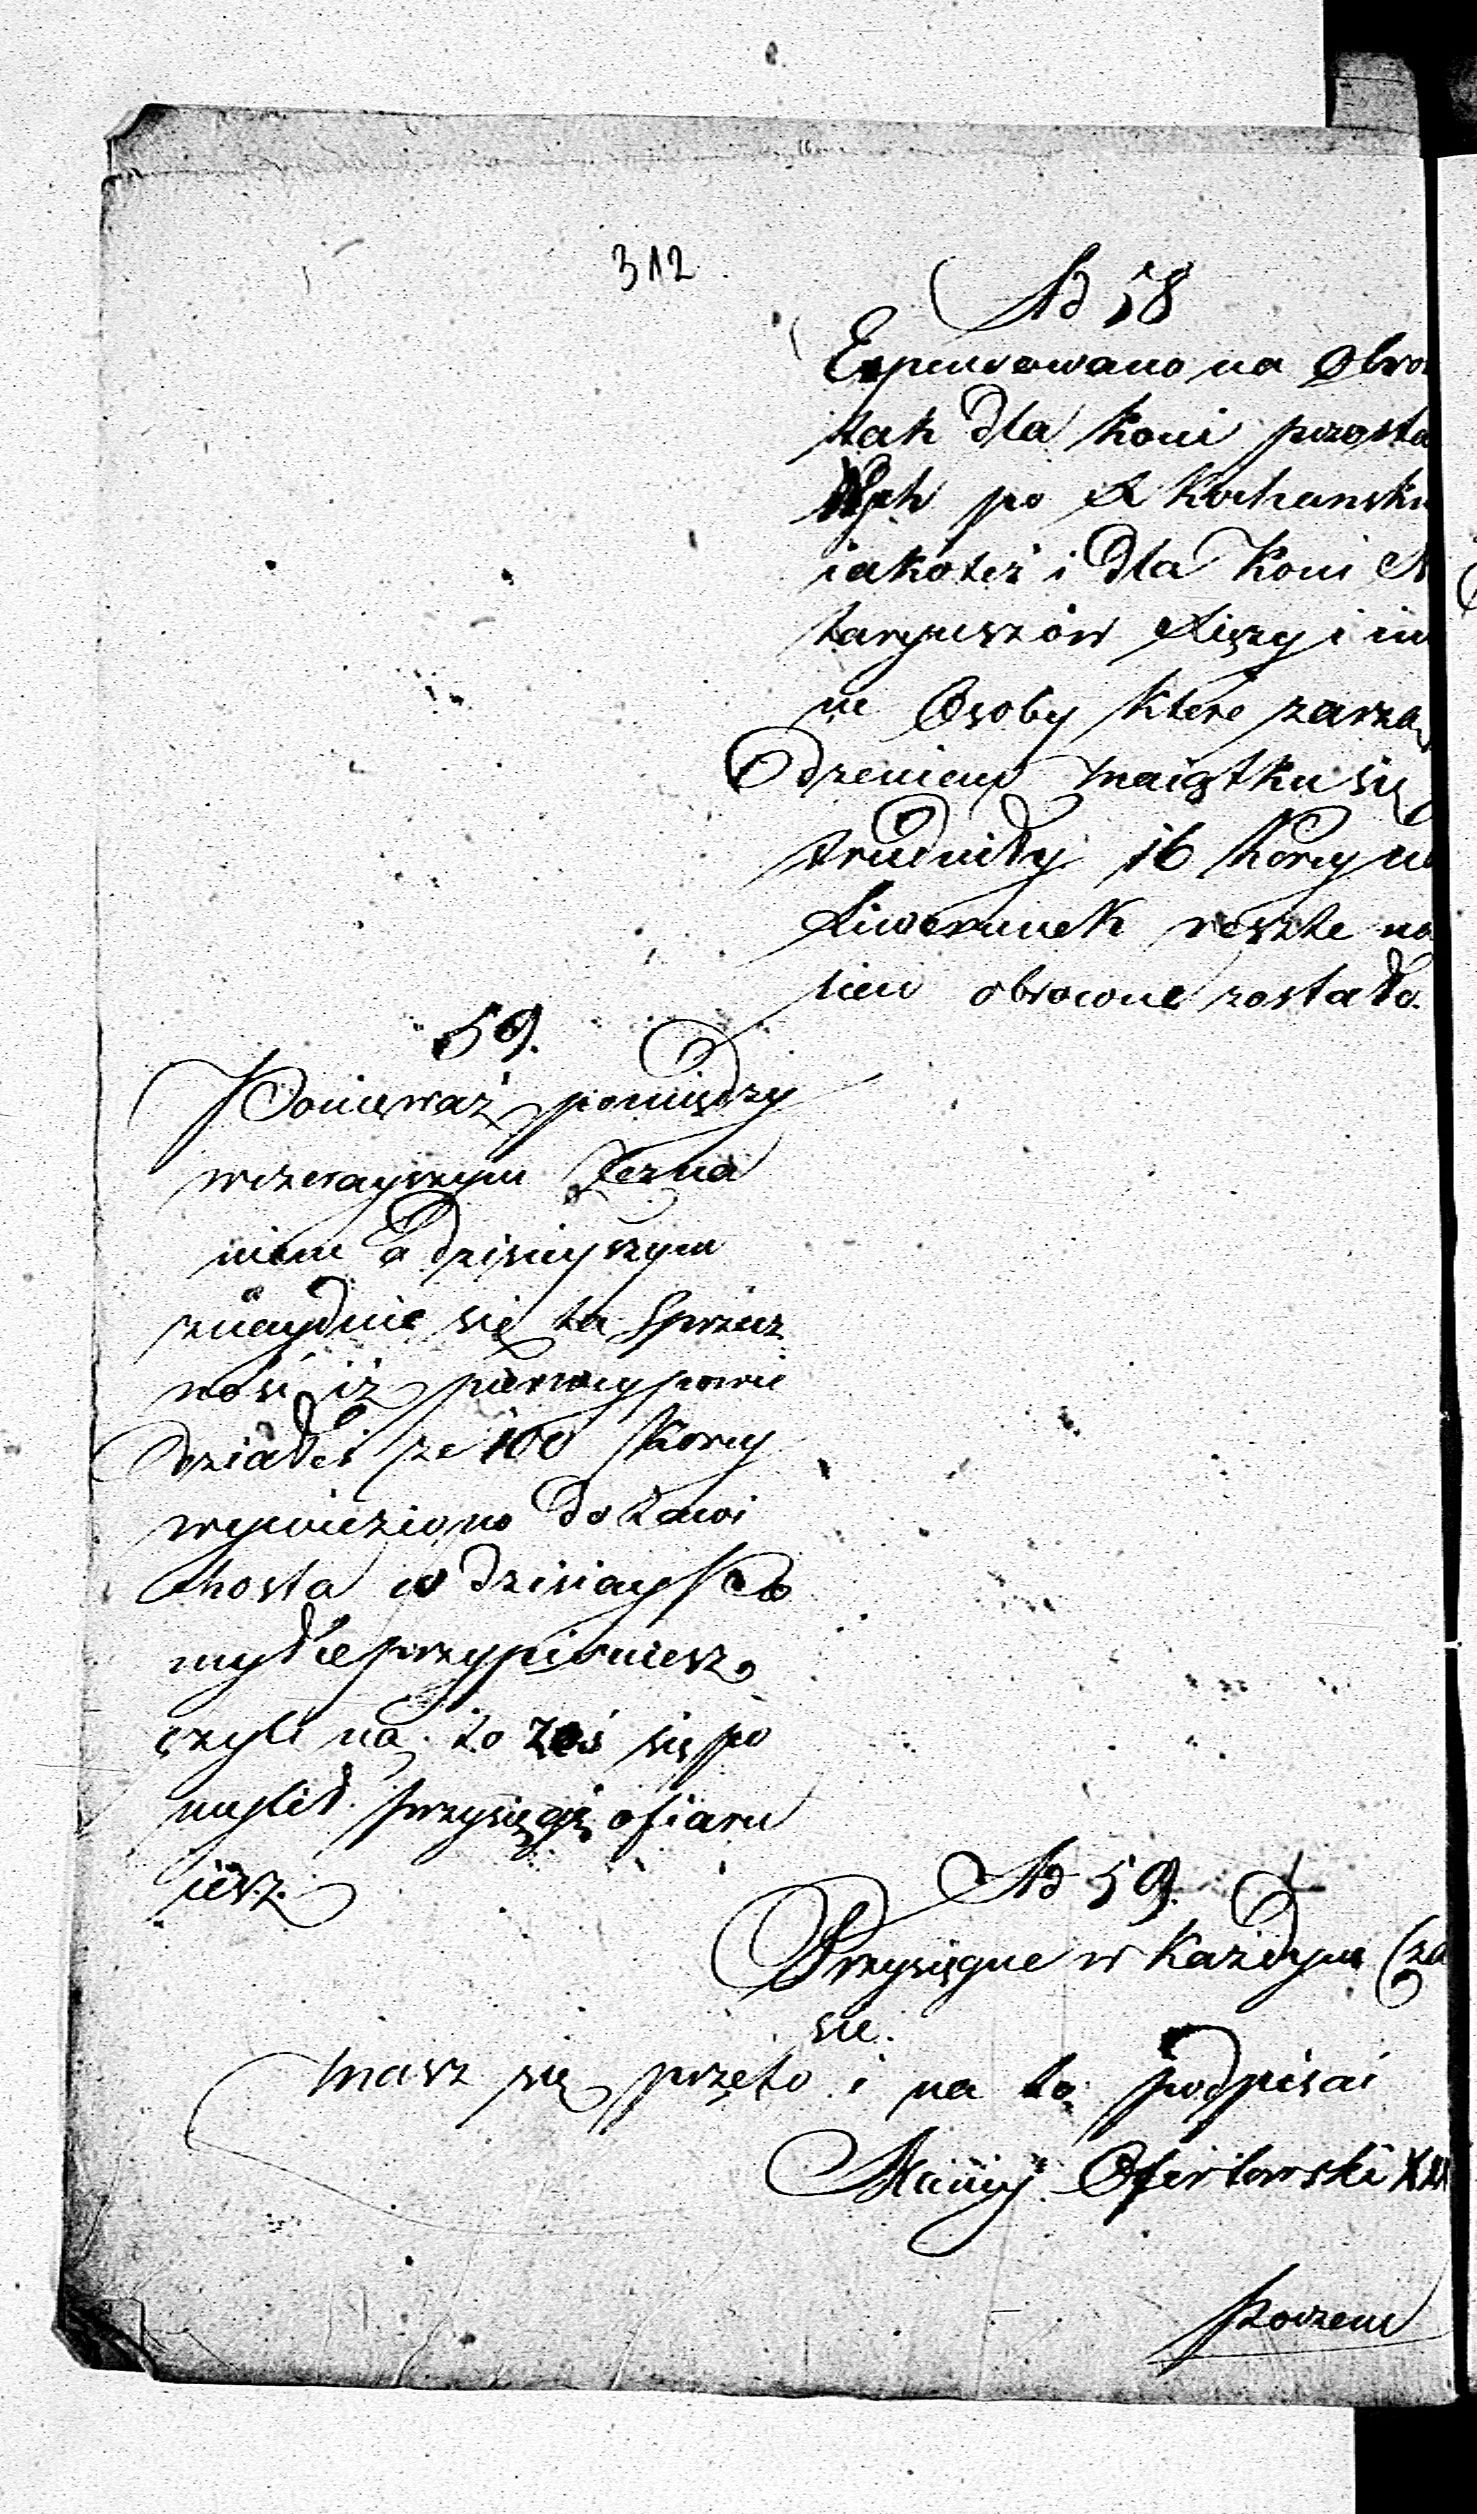 312
Ad 58
Expensowano na Obro
tak dla koni pozosta
łych po X Kochansk
iakoteż i dla Koni
taryuszów Xięży i in
ne Osoby które zarzą
dzeniem maiątku się
trudniły 16 Korcy na
Liwerunek reszte na
siew obrocone zostało.
59.
Ponieważ pomiędzy
wczorayszym Zezna
niem a dzisieyszym
znayduie się ta Sprzecz
ność iż pierwey powie
działeś że 100 Korcy
wywieziono do Zawi
chosta a dzisiay
myłce przypisuiesz,
czyli na to żeś się po
mylił przysięgę ofiaru
iesz.
Ad 59.
Przysięgne w Każdym Cza
sie.
masz się przeto i na to podpisać
XXX
Poczem